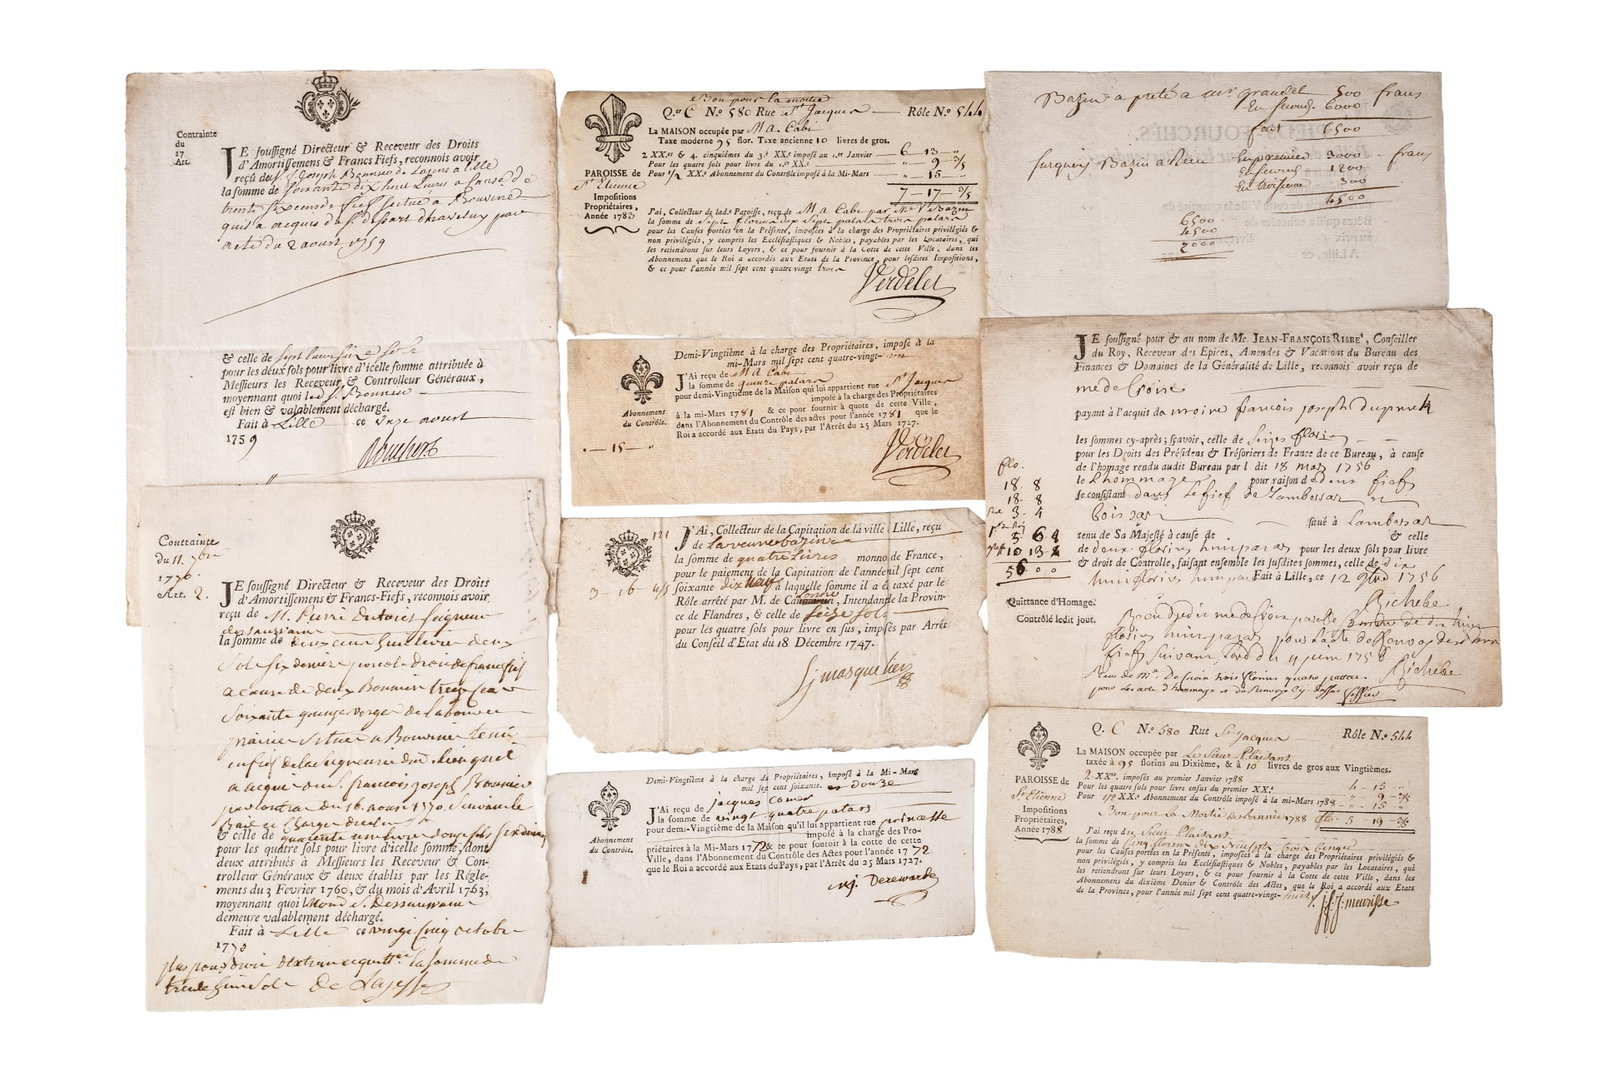 Contrainte
du
17
Art.
JE soussigné Directeur & Receveur des Droits
d'Amortissemens & Francs Fiefs, reconnois avoir
reçu de Sr Joseph Bonnier de Layens a Lille
la somme de soixante dix huit Livres a cause de
trente six cens de fief situé a Bouvines
quil a acquis du Sr par
acte du 2 aoust 1759
& celle de sept Livres seize sols
pour les deux sols pour livre d'icelle somme attribuée à
Messieurs les Receveur & Controlleur Généraux,
moyennant quoi led. Sr Bonnier
est bien & valablement déchargé.
Fait à Lille ce onze aoust
1759
Contrainte
du 11 7bre
1770.
Art. 2.
JE soussigné Directeur & Receveur des Droits
d'Amortissemens & Francs-Fiefs, reconnois avoir
reçu de M. Pierre Dutoict seigneur
la somme de deux cent huit Livres deux
sols six deniers pour le droit de francfief
a cause de deux Bonniers treize cens
soixante quinze verges de labour et
prairie situés a Bouvines tenus
en fief de la seigneurie dud. lieu quil
a acquis du Sr françois joseph Bonnier
par contrat du 16 aoust 1770. suivant le
& celle de quarante un livres douze sols six deniers
pour les quatre sols pour livre d'icelle somme, dont
deux attribués à Messieurs les Receveur & Con-
trolleur Généraux & deux établis par les Régle-
mens du 3 Février 1760, & du mois d'Avril 1763;
moyennant quoi led. Sr
demeure valablement déchargé.
Fait à Lille ce vingt cinq octobre
1770
plus pour droit la somme de
trente sols
Bon pour la moitié
Q.er C N.o 580 Rue St Jacques Rôle N.o 544
La MAISON occupée par M A. Cabi
Taxe moderne 95 flor. Taxe ancienne 10 livres de gros.
2 XX.es & 4 cinquièmes du 3.e XX.e imposé au 1.er Janvier 6-13-"
Pour les quatre sols pour livre du 1.er XX.e "-9-3/5
Pour 1/2 XX.e Abonnement du Contrôle imposé à la Mi-Mars "-15-"
7-17-3/5
PAROISSE de
St Etienne
Impositions
Propriétaires,
Année 1783
J'ai, Collecteur de lad.e Paroisse, reçu de M A Cabi par Me Ve Bazin
la somme de Sept florins dix Sept patars trois patars
pour les Causes portées en la Présente, imposées à la charge des Propriétaires privilégiés &
non privilégiés, y compris les Ecclésiastiques & Nobles, payables par les Locataires, qui
les retiendront sur leurs Loyers, & ce pour fournir à la Cotte de cette Ville, dans les
Abonnemens que le Roi a accordés aux Etats de la Province, pour lesdites Impositions,
& ce pour l'année mil sept cent quatre-vingt trois
Verdelet
Demi-Vingtième à la charge des Propriétaires, imposé à la
mi-Mars mil sept cent quatre-vingt-un
J'Ai reçu de M A Cabi
la somme de quinze patars
pour demi-Vingtième de la Maison qui lui appartient rue St Jacques
imposé à la charge des Propriétaires
à la mi-Mars 1781 & ce pour fournir à quote de cette Ville,
dans l'Abonnement du Contrôle des Actes pour l'année 1781 que le
Roi a accordé aux Etats du Pays, par l'Arrêt du 25 Mars 1727.
Abonnement
du Contrôle.
"-15-"
Verdelet
121
3-16 4/5
J'Ai, Collecteur de la Capitation de la ville Lille, reçu
de La veuve bazin
la somme de quatre livres monno de France,
pour le paiement de la Capitation de l'année mil sept cent
soixante dix neuf à laquelle somme il a é taxé par le
Rôle arrêté par M. de Caumartin, Intendant de la Provin-
ce de Flandres, & celle de seize sols
pour les quatre sols pour livre en sus, imposés par Arrêt
du Conseil d'Etat du 18 Décembre 1747.
Demi-Vingtième à la charge des Propriétaires, imposé à la Mi-Mars
mil sept cent soixante. et douze
J'Ai reçu de jacques
la somme de vingt quatre patars
pour demi-Vingtième de la Maison qu'il lui appartient rue princesse
imposé à la charge des Pro-
priétaires à la Mi-Mars 1772 & ce pour fournir à la cotte de cette
Ville, dans l'Abonnement du Contrôle des Actes pour l'année 1772
que le Roi a accordé aux Etats du Pays, par l'Arrêt du 25 Mars 1727.
Abonnement
du Contrôle.
Derewarde
Bazin a preté a mr grandel 500 frans
En second. 6000
fait 6500
Bazin a Reçu En premier 3000 frans
En second 1200
En troisieme 300
4500
6500
4500
2000
JE soussigné pour & au nom de Me. JEAN-FRANÇOIS RISBE', Conseiller
du Roy, Receveur des Epices, Amendes & Vacations du Bureau des
Finances & Domaines de la Généralité de Lille, reconnois avoir reçu de
me de Croix
payant à l'acquit de françois joseph
les sommes cy-après; sçavoir, celle de seizes florins
pour les Droits des Présidens & Trésoriers de France de ce Bureau, à cause
de l'homage rendu audit Bureau par l dit 18 mars 1756
le Lhommage pour raison de deux fiefs
se consistant dans le fief de Lambessar
situé à Lambessar
tenu de Sa Majesté à cause de & celle
de deux florins huit patars pour les deux sols pour livre
& droit de Controlle, faisant ensemble les susdites sommes, celle de dix
huit florins huit patars Fait à Lille, ce 12 9bre 1756
flo.
18-8
18-8
3-4
5 6 8
10 13 2
56 0 0
Quittance d'Homage.
Contrôlé ledit jout.
Richebé
florins huit patars pour
fiefs suivant du 4 juin 1756
Richebé
Reçu de Mr. de Croix trois florins quatre patars
pour les actes d'hommage
Q. C N.o 580 Rue St Jacques Rôle N.o 544
La MAISON occupée par Le Sieur Plaisant
taxée à 95 florins au Dixième, & à 10 livres de gros aux Vingtièmes.
2 XX.es imposés au premier Janvier 1788
Pour les quatre sols pour livre ensus du premier XX.e
Pour 1/2 XX.e Abonnement du Contrôle imposé à la mi-Mars 1788 "-15-"
Bon pour la Moitié de Lannée 1788 5-19-3/5
PAROISSE de
St Etienne
Impositions
Propriétaires,
Année 1788
J'ai reçu du Sieur Plaisant
la somme de Cinq florins dix neuf patars trois
pour les Causes portées en la Présente, imposées à la charge des Propriétaires privilégiés &
non privilégiés, y compris les Ecclésiastiques & Nobles, payables par les Locataires, qui
les retiendront sur leurs Loyers, & ce pour fournir à la Cotte de cette Ville, dans les
Abonnemens du dixième Denier & Contrôle des Actes, que le Roi a accordé aux Etats
de la Province, pour l'année mil sept cent quatre-vingt-huit
J. meurisse